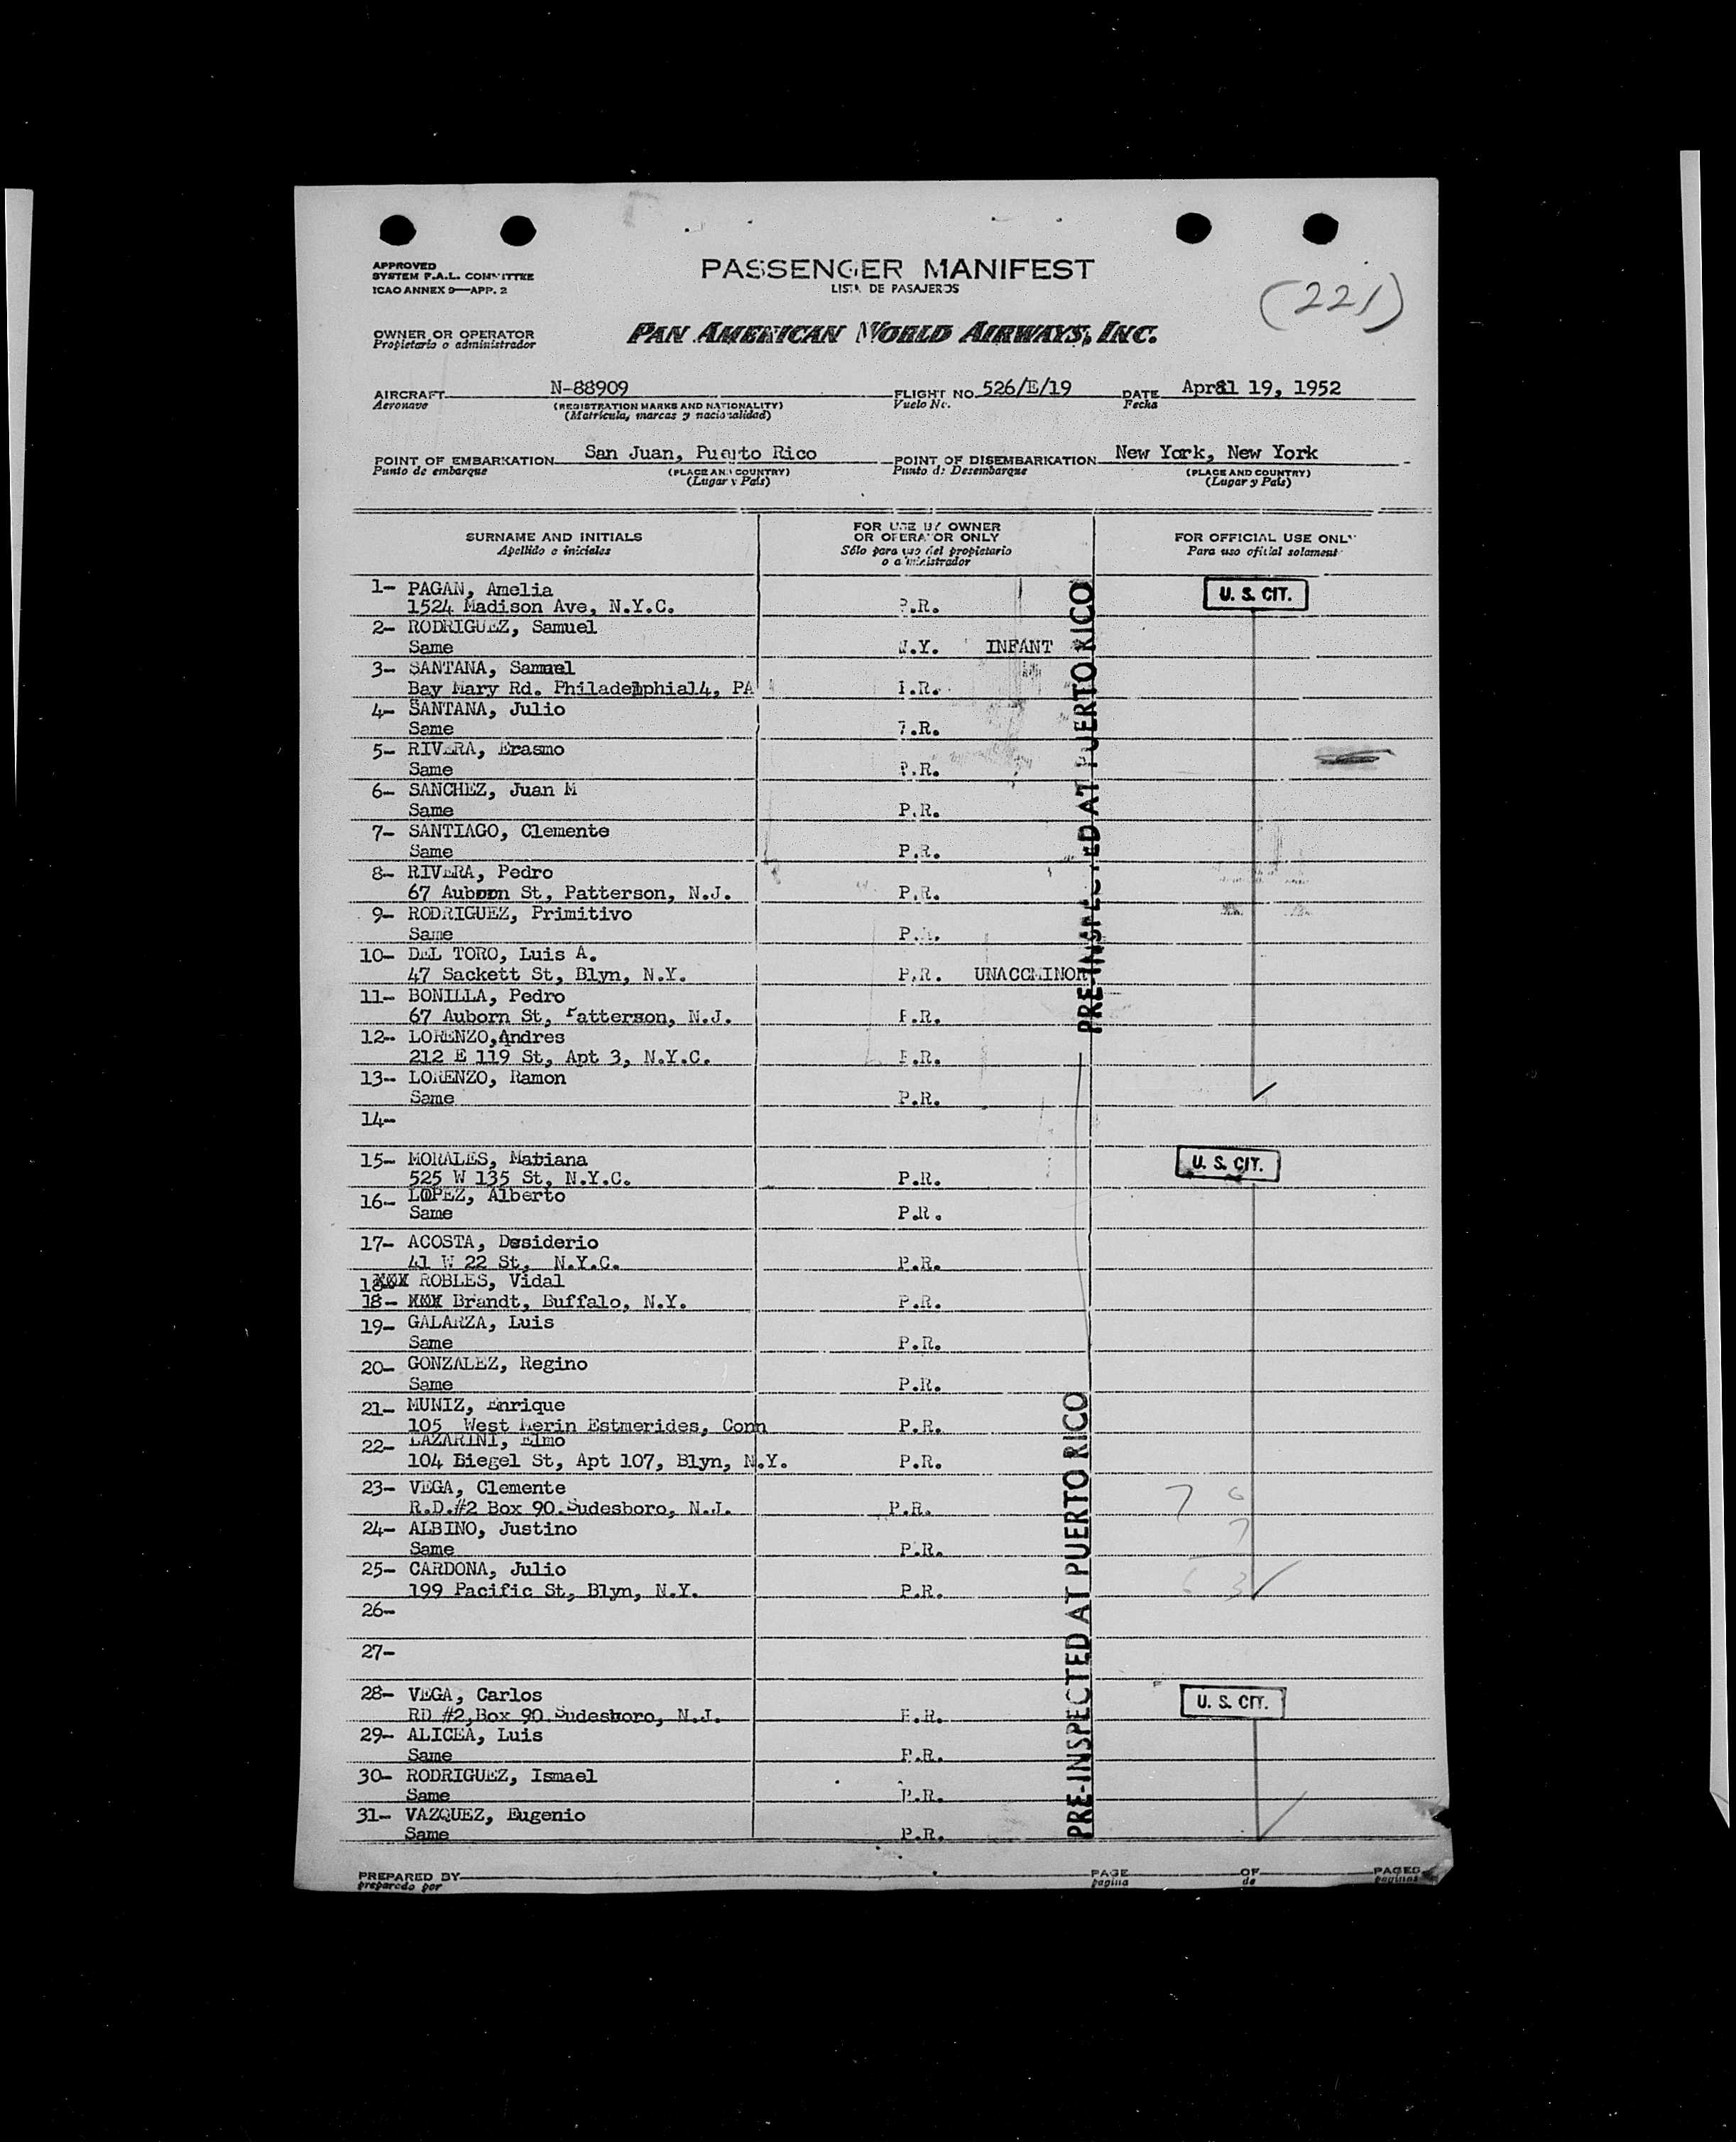 APPROVED
SYSTEM F.A.L. COMMITTEE
ICAO ANNEX 9—APP. 2
PASSENGER MANIFEST
LISTA DE PASAJEROS
(221)
OWNER OR OPERATOR
Propietario o administrador
PAN AMERICAN WORLD AIRWAYS, INC.
AIRCRAFT N-88909 FLIGHT NO. 526/E/19 DATE April 19, 1952
Aeronave (REGISTRATION MARKS AND NATIONALITY) Vuelo No. Fecha
(Matricula, marcas y nacionalidad)
POINT OF EMBARKATION San Juan, Puerto Rico POINT OF DISEMBARKATION New York, New York
Punto de embarque (PLACE AND COUNTRY) Punto de Desembarque (PLACE AND COUNTRY)
(Lugar y País) (Lugar y País)
SURNAME AND INITIALS FOR USE BY OWNER OR OPERATOR ONLY FOR OFFICIAL USE ONLY
Apellido e iniciales Sólo para uso del propietario o administrador Para uso oficial solamente
1- PAGAN, Amelia U. S. CIT.
1524 Madison Ave, N.Y.C. P.R.
2- RODRIGUEZ, Samuel
Same N.Y. INFANT
3- SANTANA, Samuel
Bay Mary Rd. Philadelphia14, PA P.R.
4- SANTANA, Julio
Same P.R.
5- RIVERA, Erasmo
Same P.R.
6- SANCHEZ, Juan M
Same P.R.
7- SANTIAGO, Clemente
Same P.R.
8- RIVERA, Pedro
67 Auborn St, Patterson, N.J. P.R.
9- RODRIGUEZ, Primitivo
Same P.R.
10- DEL TORO, Luis A.
47 Sackett St, Blyn, N.Y. P.R. UNACCMINOR
11- BONILLA, Pedro
67 Auborn St, Patterson, N.J. P.R.
12- LORENZO,Andres
212 E 119 St, Apt 3, N.Y.C. P.R.
13- LORENZO, Ramon
Same P.R.
PRE-INSPECTED AT PUERTO RICO
14-
15- MORALES, Mariana U. S. CIT.
525 W 135 St, N.Y.C. P.R.
16- LOPEZ, Alberto
Same P.R.
17- ACOSTA, Desiderio
41 W 22 St, N.Y.C. P.R.
18 ROBLES, Vidal
18- Brandt, Buffalo, N.Y. P.R.
19- GALARZA, Luis
Same P.R.
20- GONZALEZ, Regino
Same P.R.
21- MUNIZ, Enrique
105 West Estmerides, Conn P.R.
22- LAZARINI, Elmo
104 Biegel St, Apt 107, Blyn, N.Y. P.R.
23- VEGA, Clemente
R.D.#2 Box 90 Sudesboro, N.J. P.R. 7 6
24- ALBINO, Justino 7
Same P.R.
25- CARDONA, Julio 6 3
199 Pacific St, Blyn, N.Y. P.R.
26-
27-
28- VEGA, Carlos U. S. CIT.
RD #2,Box 90 Sudesboro, N.J. P.R.
29- ALICEA, Luis
Same P.R.
30- RODRIGUEZ, Ismael
Same P.R.
31- VAZQUEZ, Eugenio
Same P.R.
PRE-INSPECTED AT PUERTO RICO
PREPARED BY PAGE OF PAGES
preparado por pagina de paginas